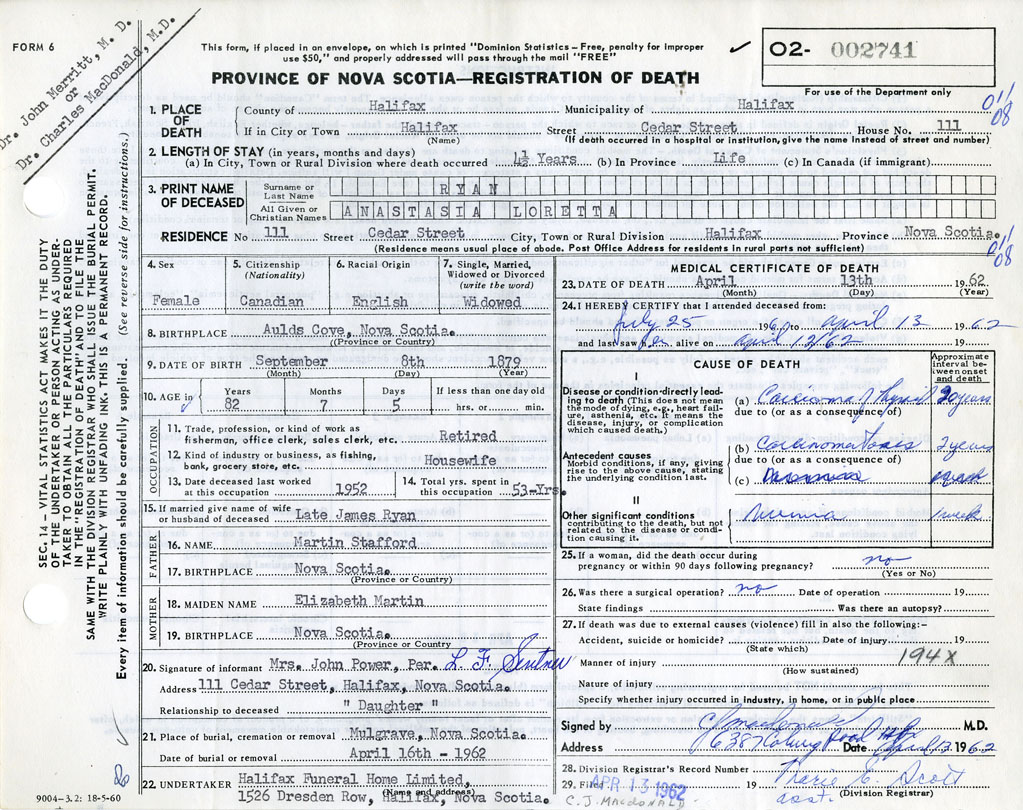 FORM 6
Dr. John Merritt, M. D.
or
Dr. Charles MacDonald, M.D.
This form, if placed in an envelope, on which is printed "Dominion Statistics – Free, penalty for improper
use $50," and properly addressed will pass through the mail "FREE"
PROVINCE OF NOVA SCOTIA—REGISTRATION OF DEATH
✓ O2- 002741
For use of the Department only
011
08
1. PLACE OF DEATH
County of Halifax Municipality of Halifax
If in City or Town Halifax Street Cedar Street House No. 111
(Name) (If death occurred in a hospital or institution, give the name instead of street and number)
2. LENGTH OF STAY (in years, months and days)
(a) In City, Town or Rural Division where death occurred 1½ Years (b) In Province Life (c) In Canada (if immigrant)
3. PRINT NAME OF DECEASED
Surname or Last Name RYAN
All Given or Christian Names ANASTASIA LORETTA
RESIDENCE No 111 Street Cedar Street City, Town or Rural Division Halifax Province Nova Scotia.
(Residence means usual place of abode. Post Office Address for residents in rural parts not sufficient)
011
08
4. Sex
Female
5. Citizenship
(Nationality)
Canadian
6. Racial Origin
English
7. Single, Married,
Widowed or Divorced
(write the word)
Widowed
8. BIRTHPLACE Aulds Cove, Nova Scotia.
(Province or Country)
9. DATE OF BIRTH September 8th 1879
(Month) (Day) (Year)
10. AGE in
Years Months Days If less than one day old
82 7 5 hrs. or min.
OCCUPATION
11. Trade, profession, or kind of work as
fisherman, office clerk, sales clerk, etc. Retired
12. Kind of industry or business, as fishing,
bank, grocery store, etc. Housewife
13. Date deceased last worked
at this occupation 1952
14. Total yrs. spent in
this occupation 53-Yrs.
15. If married give name of wife
or husband of deceased Late James Ryan
FATHER
16. NAME Martin Stafford
17. BIRTHPLACE Nova Scotia.
(Province or Country)
MOTHER
18. MAIDEN NAME Elizabeth Martin
19. BIRTHPLACE Nova Scotia.
(Province or Country)
20. Signature of informant Mrs. John Power, Per. L. F.
Address 111 Cedar Street, Halifax, Nova Scotia.
Relationship to deceased " Daughter "
21. Place of burial, cremation or removal Mulgrave, Nova Scotia.
Date of burial or removal April 16th - 1962
22. UNDERTAKER Halifax Funeral Home Limited,
(Name and address)
1526 Dresden Row, Halifax, Nova Scotia.
MEDICAL CERTIFICATE OF DEATH
23. DATE OF DEATH April 13th 1962
(Month) (Day) (Year)
24. I HEREBY CERTIFY that I attended deceased from:
July 25 196 to April 13 1962
and last saw her alive on April 12/62 19
CAUSE OF DEATH
Approximate
interval be-
tween onset
and death
I
Disease or condition directly lead-
ing to death (This does not mean
the mode of dying, e.g., heart fail-
ure, asthenia, etc. It means the
disease, injury, or complication
which caused death.)
(a) Carcinoma of Thyroid 20 years
due to (or as a consequence of)
Antecedent causes
Morbid conditions, if any, giving
rise to the above cause, stating
the underlying condition last.
(b) Carcinoma 2 years
due to (or as a consequence of
(c)
II
Other significant conditions
contributing to the death, but not
related to the disease or condi-
tion causing it.
1 week
25. If a woman, did the death occur during
pregnancy or within 90 days following pregnancy? no
(Yes or No)
26. Was there a surgical operation? no Date of operation 19
State findings Was there an autopsy?
27. If death was due to external causes (violence) fill in also the following:-
Accident, suicide or homicide? Date of injury 19
(State which)
194X
Manner of injury
(How sustained)
Nature of injury
Specify whether injury occurred in industry, in home, or in public place
Signed by C J MacDonald M.D.
Address 6387 Coburg Road Hfx Date April 13 1962
28. Division Registrar's Record Number
29. Filed APR 13 1962 19 Marie E. Scott
asst. (Division Registrar)
C. J. MACDONALD
SEC. 14 – VITAL STATISTICS ACT MAKES IT THE DUTY
OF THE UNDERTAKER OR PERSON ACTING AS UNDER-
TAKER TO OBTAIN ALL THE PARTICULARS REQUIRED
IN THE "REGISTRATION OF DEATH" AND TO FILE THE
SAME WITH THE DIVISION REGISTRAR WHO SHALL ISSUE THE BURIAL PERMIT.
WRITE PLAINLY WITH UNFADING INK. THIS IS A PERMANENT RECORD.
Every item of information should be carefully supplied. (See reverse side for instructions.)
9004-3.2: 18-5-60